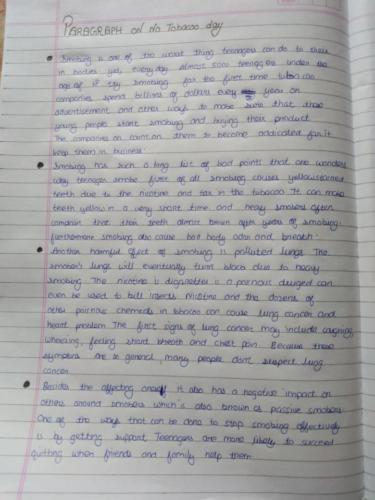 PARAGRAPH on No Tobacco day
Smoking is one of the worst thing teenagers can do to their
in bodies yet, everyday almost 5000 teenagers under the
age of try smoking for the first time tobacco
companies spend billions of dollars every year on
advertisement and other ways to make sure that these
young people start smoking and buying their product
The companies on count on them to become addicated for it
keep them in business.
Smoking has such a long list of bad points that one wonders
why teenager smoke first of all smoking causes yellow
teeth due to the nicotine and tar in the tobacco It can make
teeth yellow in a very short time and heavy smokers often
complain that their teeth almost brown after years of smoking.
furthermore smoking also cause bad body odor and breath.
Another harmful effect of smoking is polluted lungs The
smoker's lungs will eventually turn black due to heavy
smoking The nicotine is a poisonous can
even be used to kill insects Nicotine and the dozens of
other poisonous chemicals in tobacco can cause lung cancer and
heart problem The first signs of lung cancer may include coughing,
wheezing, feeling short breath and chest pain. Because these
symptoms are so general, many people dont suspect lung
cancer
Besides the affecting it also has a negative impact on
others around smokers which is also known as passive smokers
One of the ways that can be done to stop smoking effectively
is by getting support Teenagers are more likely to succeed
quitting when friends and family help them